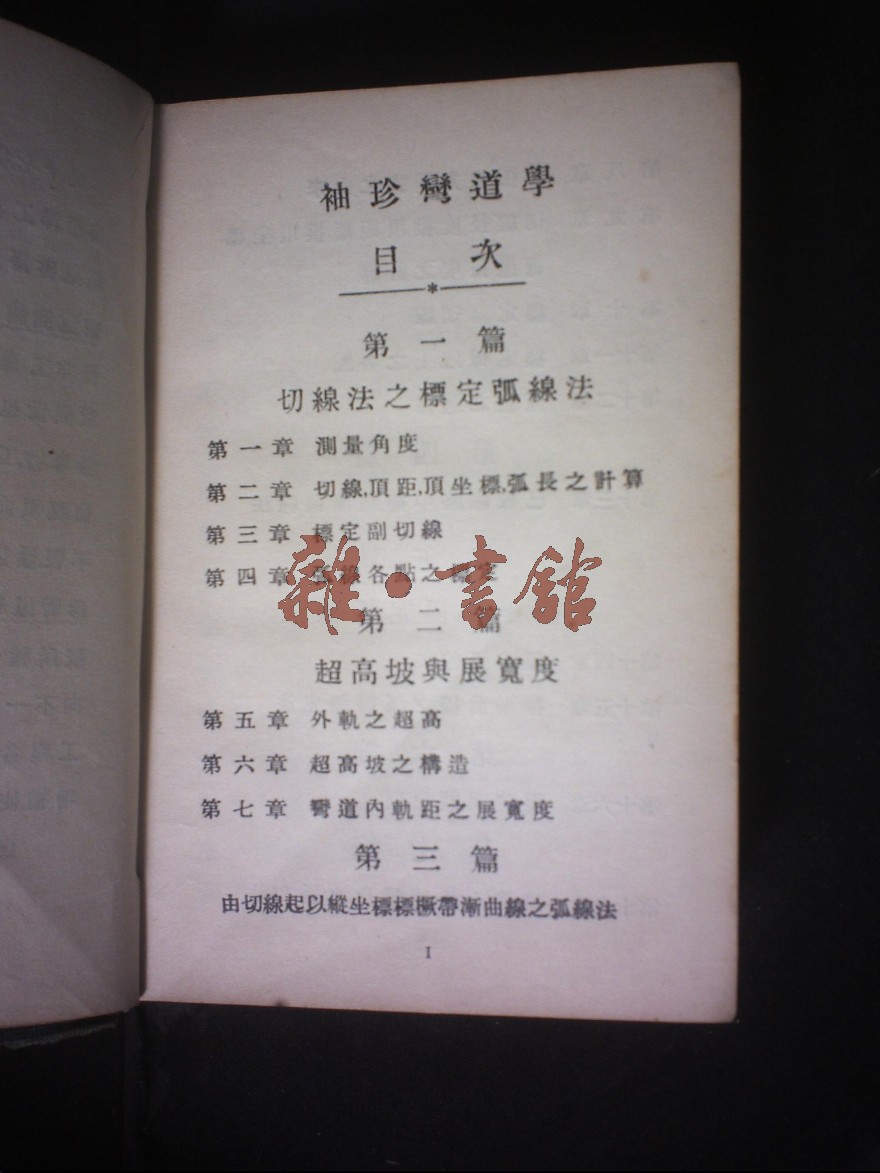 袖珍彎道學
目次
第一篇
切線法之標定弧線法
第一章 測量角度
第二章 切線,頂距,頂坐標,弧長之計算
第三章 標定副切線
第四章 弧線各點之標定
雜·書館
第二篇
超高坡與展寬度
第五章 外軌之超高
第六章 超高坡之構造
第七章 彎道內軌距之展寬度
第三篇
由切線起以縱坐標標橛帶漸曲線之弧線法
I